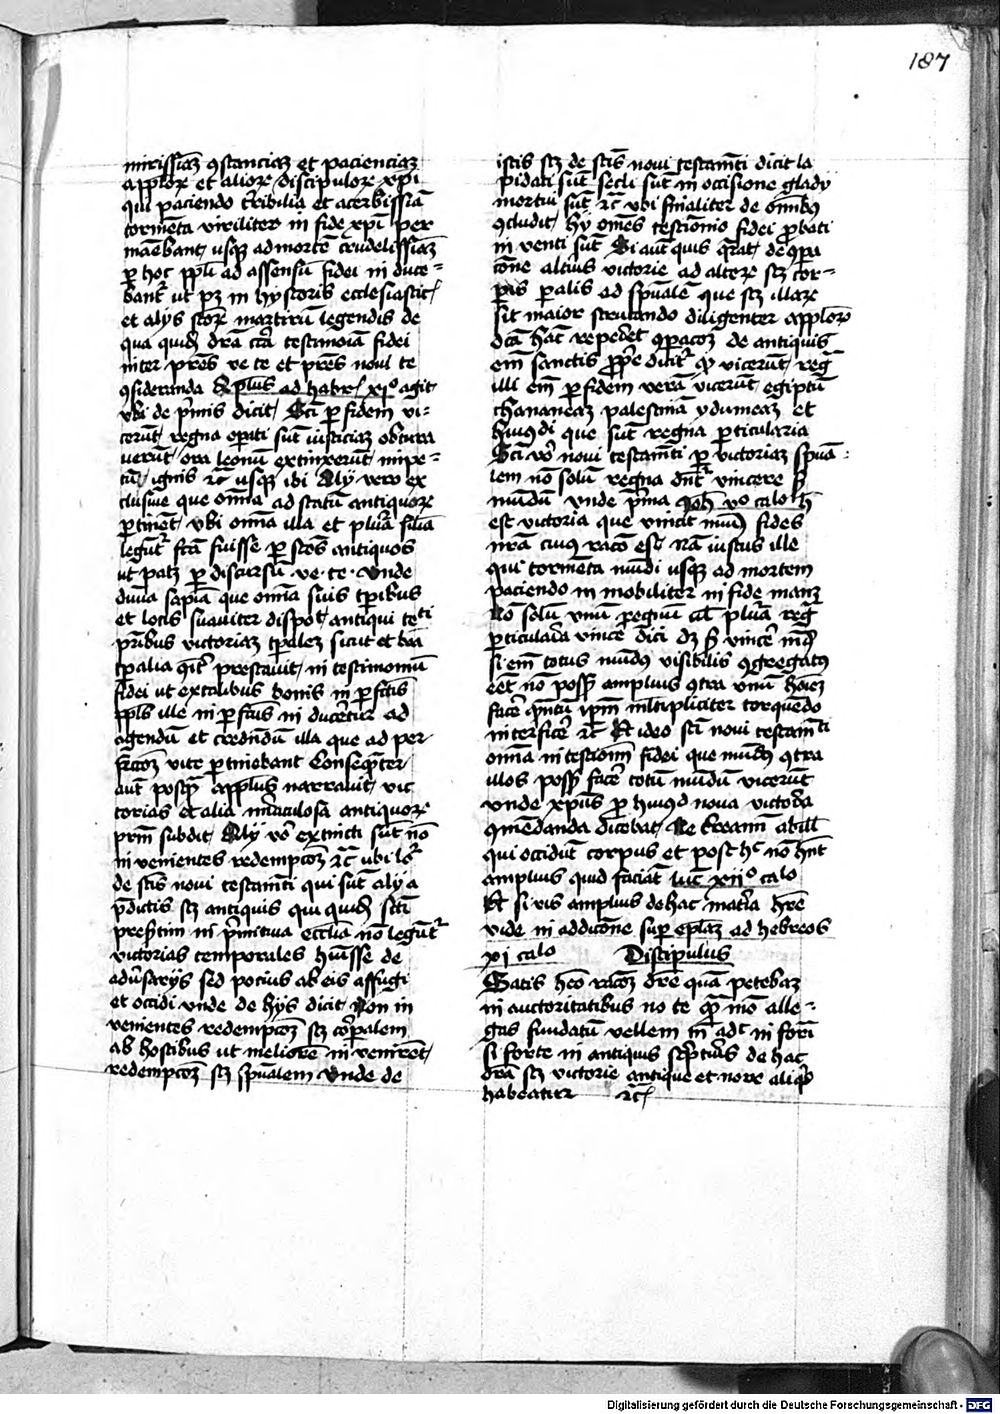 187
mirissīaȝ ꝯstanciaȝ et pacienciaȝ
appl'oꝝ et alioꝝ discipuloꝝ xp̄i
qui paciendo t'ribilia et acerbissīa
tormēta viriliter in fide xp̄i per
manebant usqȝ ad mortē crudelissīaȝ
ꝑ hoc ppl'i ad assensū fidei in duce=
bant' ut pȝ in hystoris ecclesiastic'
et alijs sctōꝝ martirū legendis de
qua quid' dr̄a circa testimoīa fidei
inter pr̄es ve te et pr̄es noui te
ꝯsideranda apl'us ad hebr' xiº agit
vbi de p'mis dicit Sc̄i ꝑ fidem vi=
cerūt regna opati sūt iusticiaȝ obtura
uerūt ora leonū extinxerūt impe=
tū ignis ⁊c̄ usqȝ ibi Alij vero ex
clusiue que om̄ia ad statū antiquoꝝ
ꝑtinēt vbi om̄ia illa et plura silia
legūt' sc̄a fuisse ꝑ sc̄os antiquos
ut patȝ ꝑ discursū ve te Unde
diuina sapīa que om̄ia suis tp̄ibus
et locis suauiter dispoīt antiqui te
pr̄ibus victoriaȝ tp̄aleȝ sicut et bōa
tp̄alia prestauit in testimoniū
fidei ut ex talibus bonis in ꝑfectis
ppl's ille in ꝑfectus in duceretur ad
agendū et credēdū illa que ad per
fcc̄oȝ vite ꝑtinebant Consequēter
aūt postqȝ appl'us narrauit vic
torias et alia miraculosa antiquoꝝ
prm̄ subdit Alij vº extincti sūt nō
in venientes redempcōȝ ⁊c̄ ubi
de sc̄is noui testamēti qui sūt alij a
p̄dictis scȝ antiquis qui quid' sc̄i
presertim in p'mitiua eccl̄ia nō legūt'
victorias temporales huisse de
adu'sarijs sed pocius ab eis affugi
et occidi vnde de hijs dicit Non in
venientes redempcōȝ scȝ corp̄alem
ab hostibus ut meliorē in venirēt
redempcōȝ scȝ spūalem Unde de
istis scȝ de sc̄is noui testamēti dicit la
pidati sūt secti sūt in occisione gladij
mortui sūt ⁊c̄ vbi finaliter de om̄ibȝ
ꝯcludit hij om̄es testiōnio fidei ꝓbati
in venti sūt Si aūt quis q̄rat de ꝯꝑa
cōne altius victorie ad alteꝝ scȝ cor=
pis ꝑalis ad spūalē que scȝ illaꝝ
sit maior scrutando diligenter appl'oꝝ
dcā hāc repedet ꝯꝑacōȝ de antiquis
em̄ sanctis p̄p'e dicit' qꝫ vicerūt reḡ
illi em̄ ꝑ fidem verā vicerūt egiptū
chananeaȝ palestinā ydumeaȝ et
huiꝯdi que sūt regna ꝑticularia
Sc̄i vº noui testamēti ꝑ victoriaȝ spūa
lem nō solū regna dn̄t' vincere sȝ
mūdū vnde p'ma Joh' vº calo h'
est victoria que vincit mūd' fides
nr̄a cuius racō est nā iustus ille
qui tormēta mūdi usqȝ ad mortem
paciendo in mobiliter in fide manȝ
Nō solū vnū regnū vl' pl'ua reḡ
ꝑticularia vince' dici dȝ sȝ vince' mūd'
si em̄ totus mūdus visibilis ꝯgregatꝯ
eēt nō possȝ amplius ꝯtra vnū hōieȝ
face' quntū ip̄m m̄ltipliciter torquēdo
interfice' ⁊c̄ Et ideo sc̄i noui testamēti
om̄ia in testiom̄ fidei que mūdꝯ ꝯtra
illos possȝ face' totū mūdū vicerūt
vnde xp̄us ꝑ huiꝯd' noua victoria
ꝯmēdanda dicebat Ne treamī ab ill'
qui occidūt corpus et post h' nō hn̄t
amplius quid faciāt luc' xijº calo
Et si vis amplius de hac mat'ia h'ē
vide in addicōne super epl'aȝ ad hebreos
xi calo Discipulus
Satis h'eo racōȝ dr̄e quā petebaȝ
in auctoritatibus no te q̄ȝ mō alle=
gas fundatū vellem tn̄ adc' in for'i
si forte in antiquis sc̄pturis de hac
dr̄a scȝ victorie antique et noue aliqd'
habeatur ⁊c̄
Digitalisierung gefördert durch die Deutsche Forschungsgemeinschaft - DFG